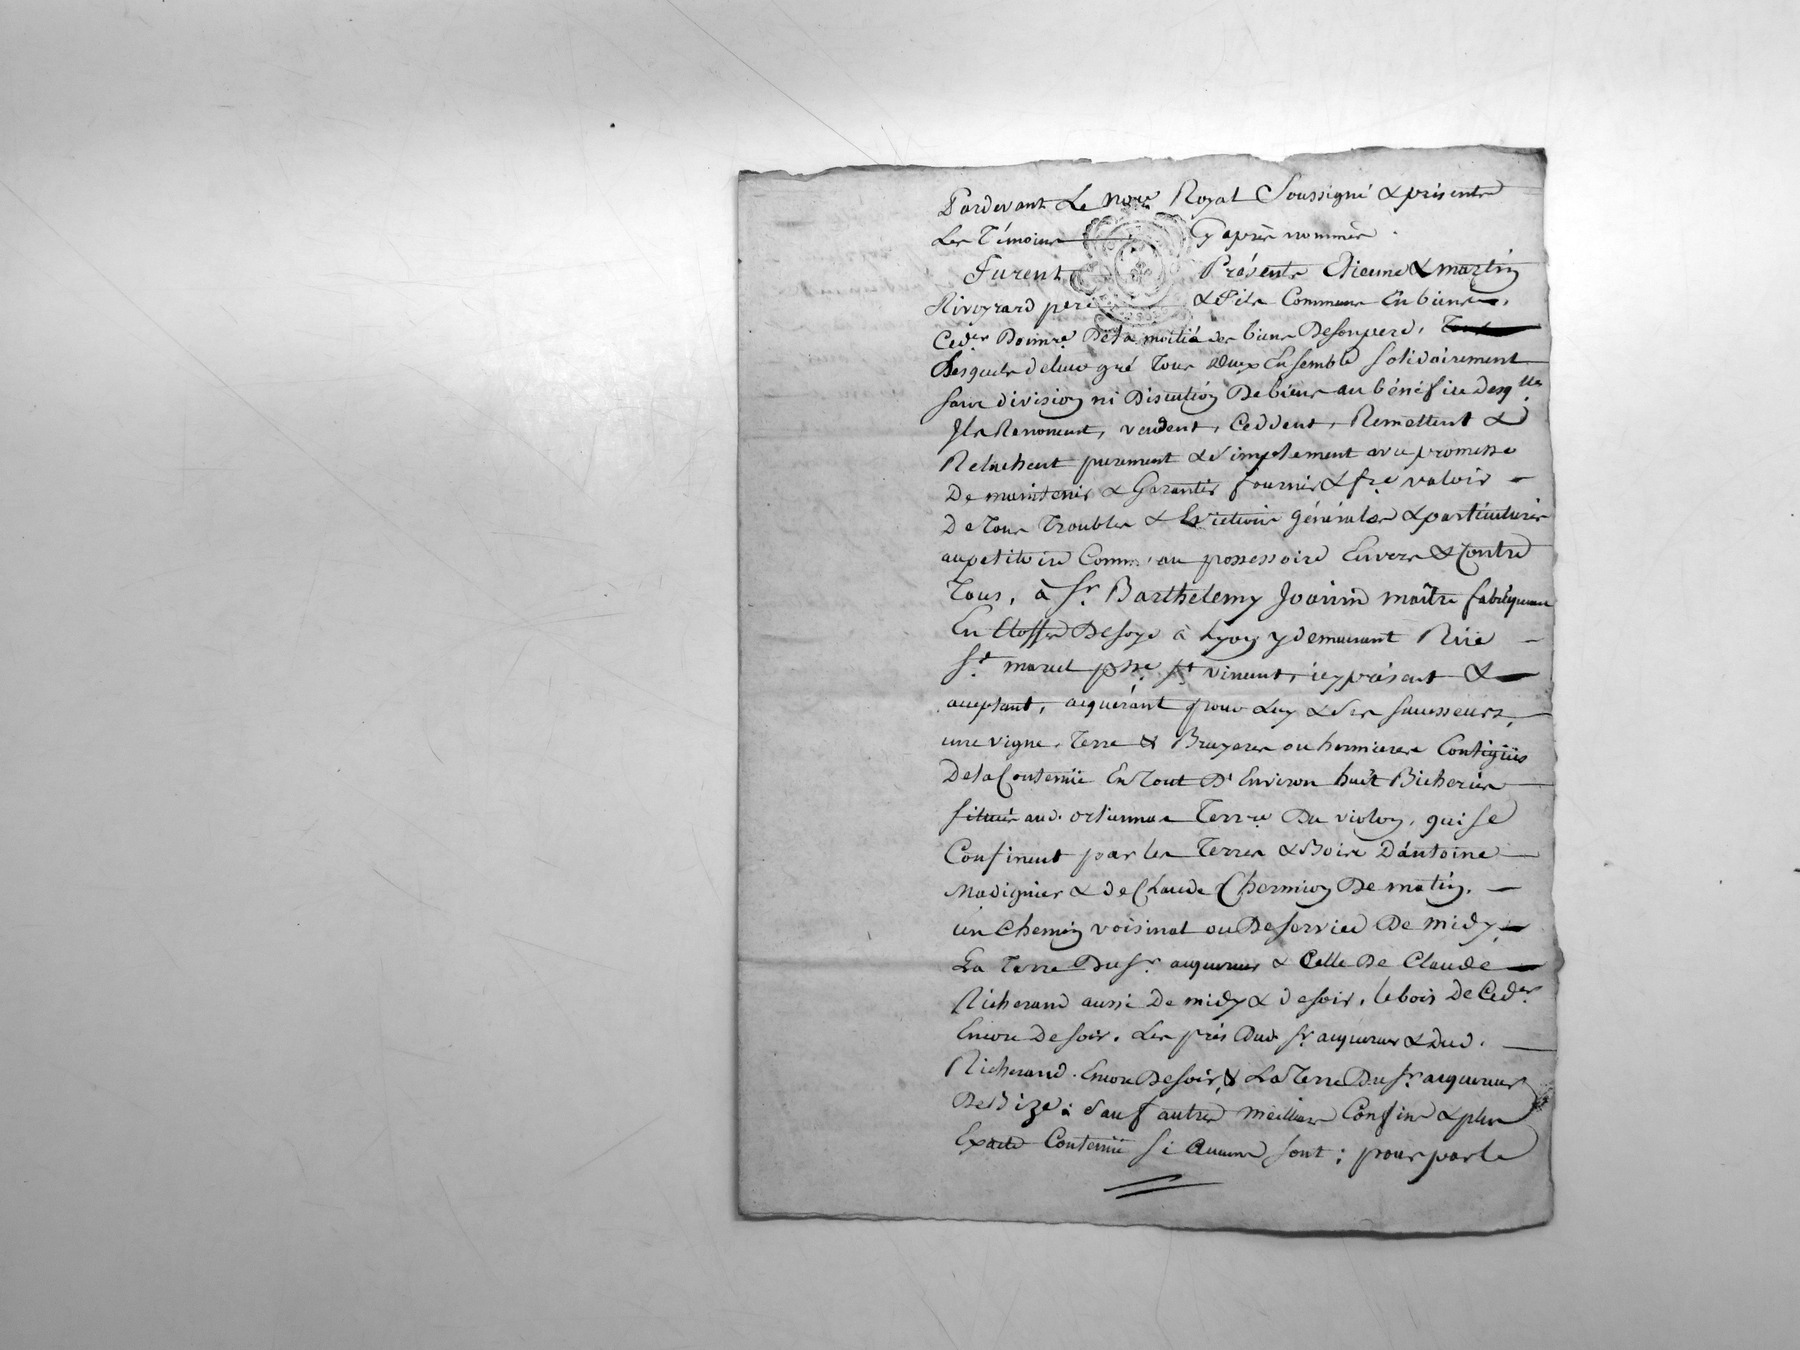 Pardevant Le Nore Royal Soussigné & présents
Les Témoins Cy après nommés.
Furent Présents Etienne & martin
Rivoyrard pere & Fils Communs En biens,
Ced.er Donnre De la moitié des biens De son pere,
Lesquels de leur gré Tous deux Ensemble Solidairement
sans division ni Discution De biens au bénéfice desq.lls
Ils Renoncent, vendent, Ceddent, Remettent &
Relachent purement & simplement avec promesse
De maintenir & Garantir fournir & fre valoir
De Tous Troubles & Evictions générales & particulieres
au petitoire Comm' au possessoire Envers & Contre
Tous, à Sr. Barthelemy Joannin maître fabriquant
En Etoffes De Soye à Lyon y demeurant Rüe
St. marcel psse. St vincent, icy présent &
acceptant, acquérant pour Luy & Ses successeurs,
une vigne, Terre & Bruyeres ou hermieres Contigües
De la Contenüe En Tout D'Environ huit Bicherées
situés aud. Terre Du violon, qui se
Confinent par les Terres & Bois D'antoine
Madignier & de Claude Chermion De matin,
un Chemin voisinal ou De Service De midy,
La Terre Du Sr. acquereur & Celle De Claude
Richerand aussi De midy & de soir, le bois De Ced.er
Encore De soir. Les prés Dud. Sr acquereur & dud.
Richerand Encore De soir, & La Terre Du Sr. acquereur
De Bize; Sauf autres meilleurs Confins & plus
Exacte Contenüe Si Aucuns sont; pour par le